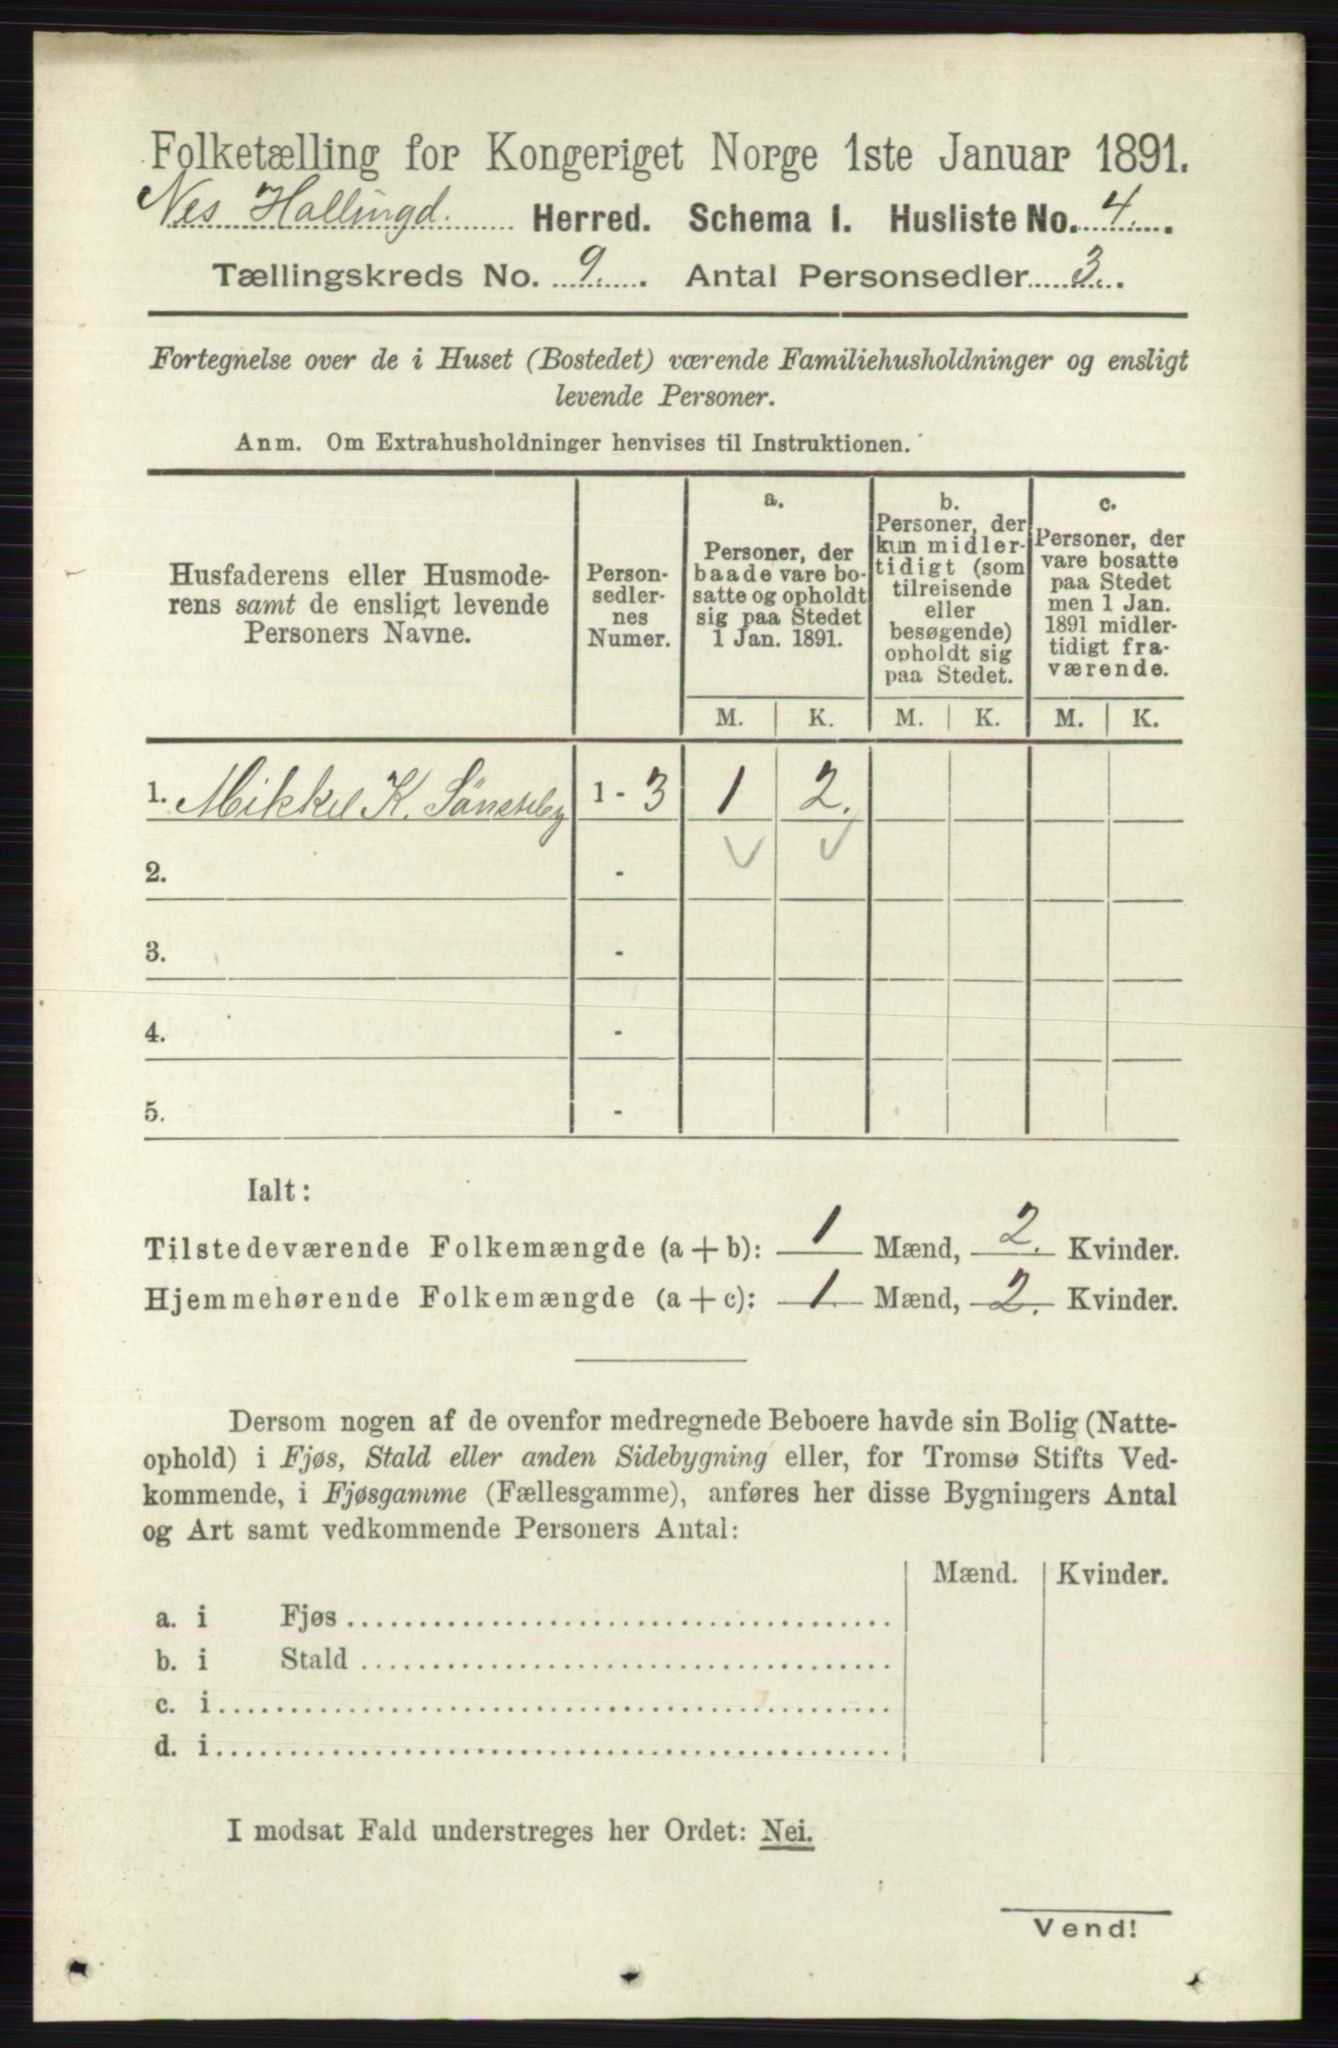 Folketælling for Kongeriget Norge 1ste Januar 1891.
Nes Hallingd. Herred. Schema 1. Husliste No. 4.
Tællingskreds No. 9. Antal Personsedler 3.
Fortegnelse over de i Huset (Bostedet) værende Familiehusholdninger og ensligt
levende Personer.
Anm. Om Extrahusholdninger henvises til Instruktionen.
Husfaderens eller Husmode-
rens samt de ensligt levende
Personers Navne.
Person-
sedler-
nes
Numer.
a.
Personer, der
baade vare bo-
satte og opholdt
sig paa Stedet
1 Jan. 1891.
b.
Personer, der
kun midler-
tidigt (som
tilreisende
eller
besøgende)
opholdt sig
paa Stedet.
c.
Personer, der
vare bosatte
paa Stedet
men 1 Jan.
1891 midler-
tidigt fra-
værende.
M. K. M. K. M. K.
1. Mikkel K. 1 - 3 1 2.
2. -
3. -
4. -
5. -
Ialt:
Tilstedeværende Folkemængde (a + b): 1 Mænd, 2. Kvinder.
Hjemmehørende Folkemængde (a + c): 1. Mænd, 2. Kvinder.
Dersom nogen af de ovenfor medregnede Beboere havde sin Bolig (Natte-
ophold) i Fjøs, Stald eller anden Sidebygning eller, for Tromsø Stifts Ved-
kommende, i Fjøsgamme (Fællesgamme), anføres her disse Bygningers Antal
og Art samt vedkommende Personers Antal:
Mænd. Kvinder.
a. i Fjøs
b. i Stald
c. i
d. i
I modsat Fald understreges her Ordet: Nei.
Vend!